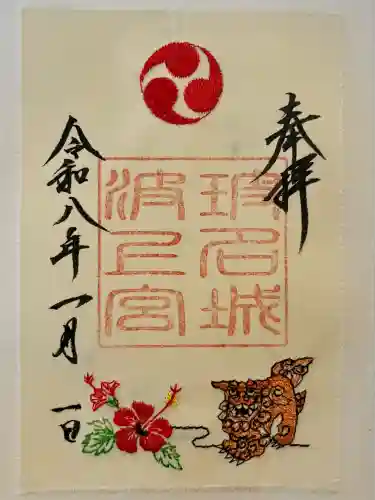 奉拝
玻名城
波上宮
令和八年一月一日